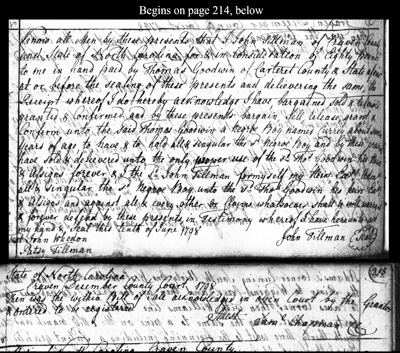 Begins on page 214, below
Know all men by these presents that I John Tillman of Craven County
and State of North Carolina for & in consideration of Eighty
to me in hand paid by Thomas Goodwin of Carteret County & State
at or before the sealing of these presents and delivering the same the
Receipt whereof I do hereby acknowledge I have bargained sold & released
granted & confirmed and by these presents bargain sell release grant &
confirm unto the said Thomas Goodwin a Negroe Boy named about
years of age to have & to hold all & singular the sd Negroe Boy and by these
have sold & delivered unto the only proper use of the sd Thos Goodwin his Heirs
& Assigns forever & I the sd John Tillman for myself my Heirs
all & singular the sd Negroe Boy unto the sd Thos Goodwin his Heirs
& Assigns and against all & every other person whatsoever shall & will warrant
& forever defend by these presents in testimony whereof I have hereunto set
my hand & Seal this tenth of June 1798
John John Tillman (Seal)
Patsy Tillman
State of North Carolina 215
Craven December County Court 1798
Then was the within Bill of Sale acknowledged in open Court by the Grantor
& ordered to be registered
Attest
Saml Chapman
Craven County